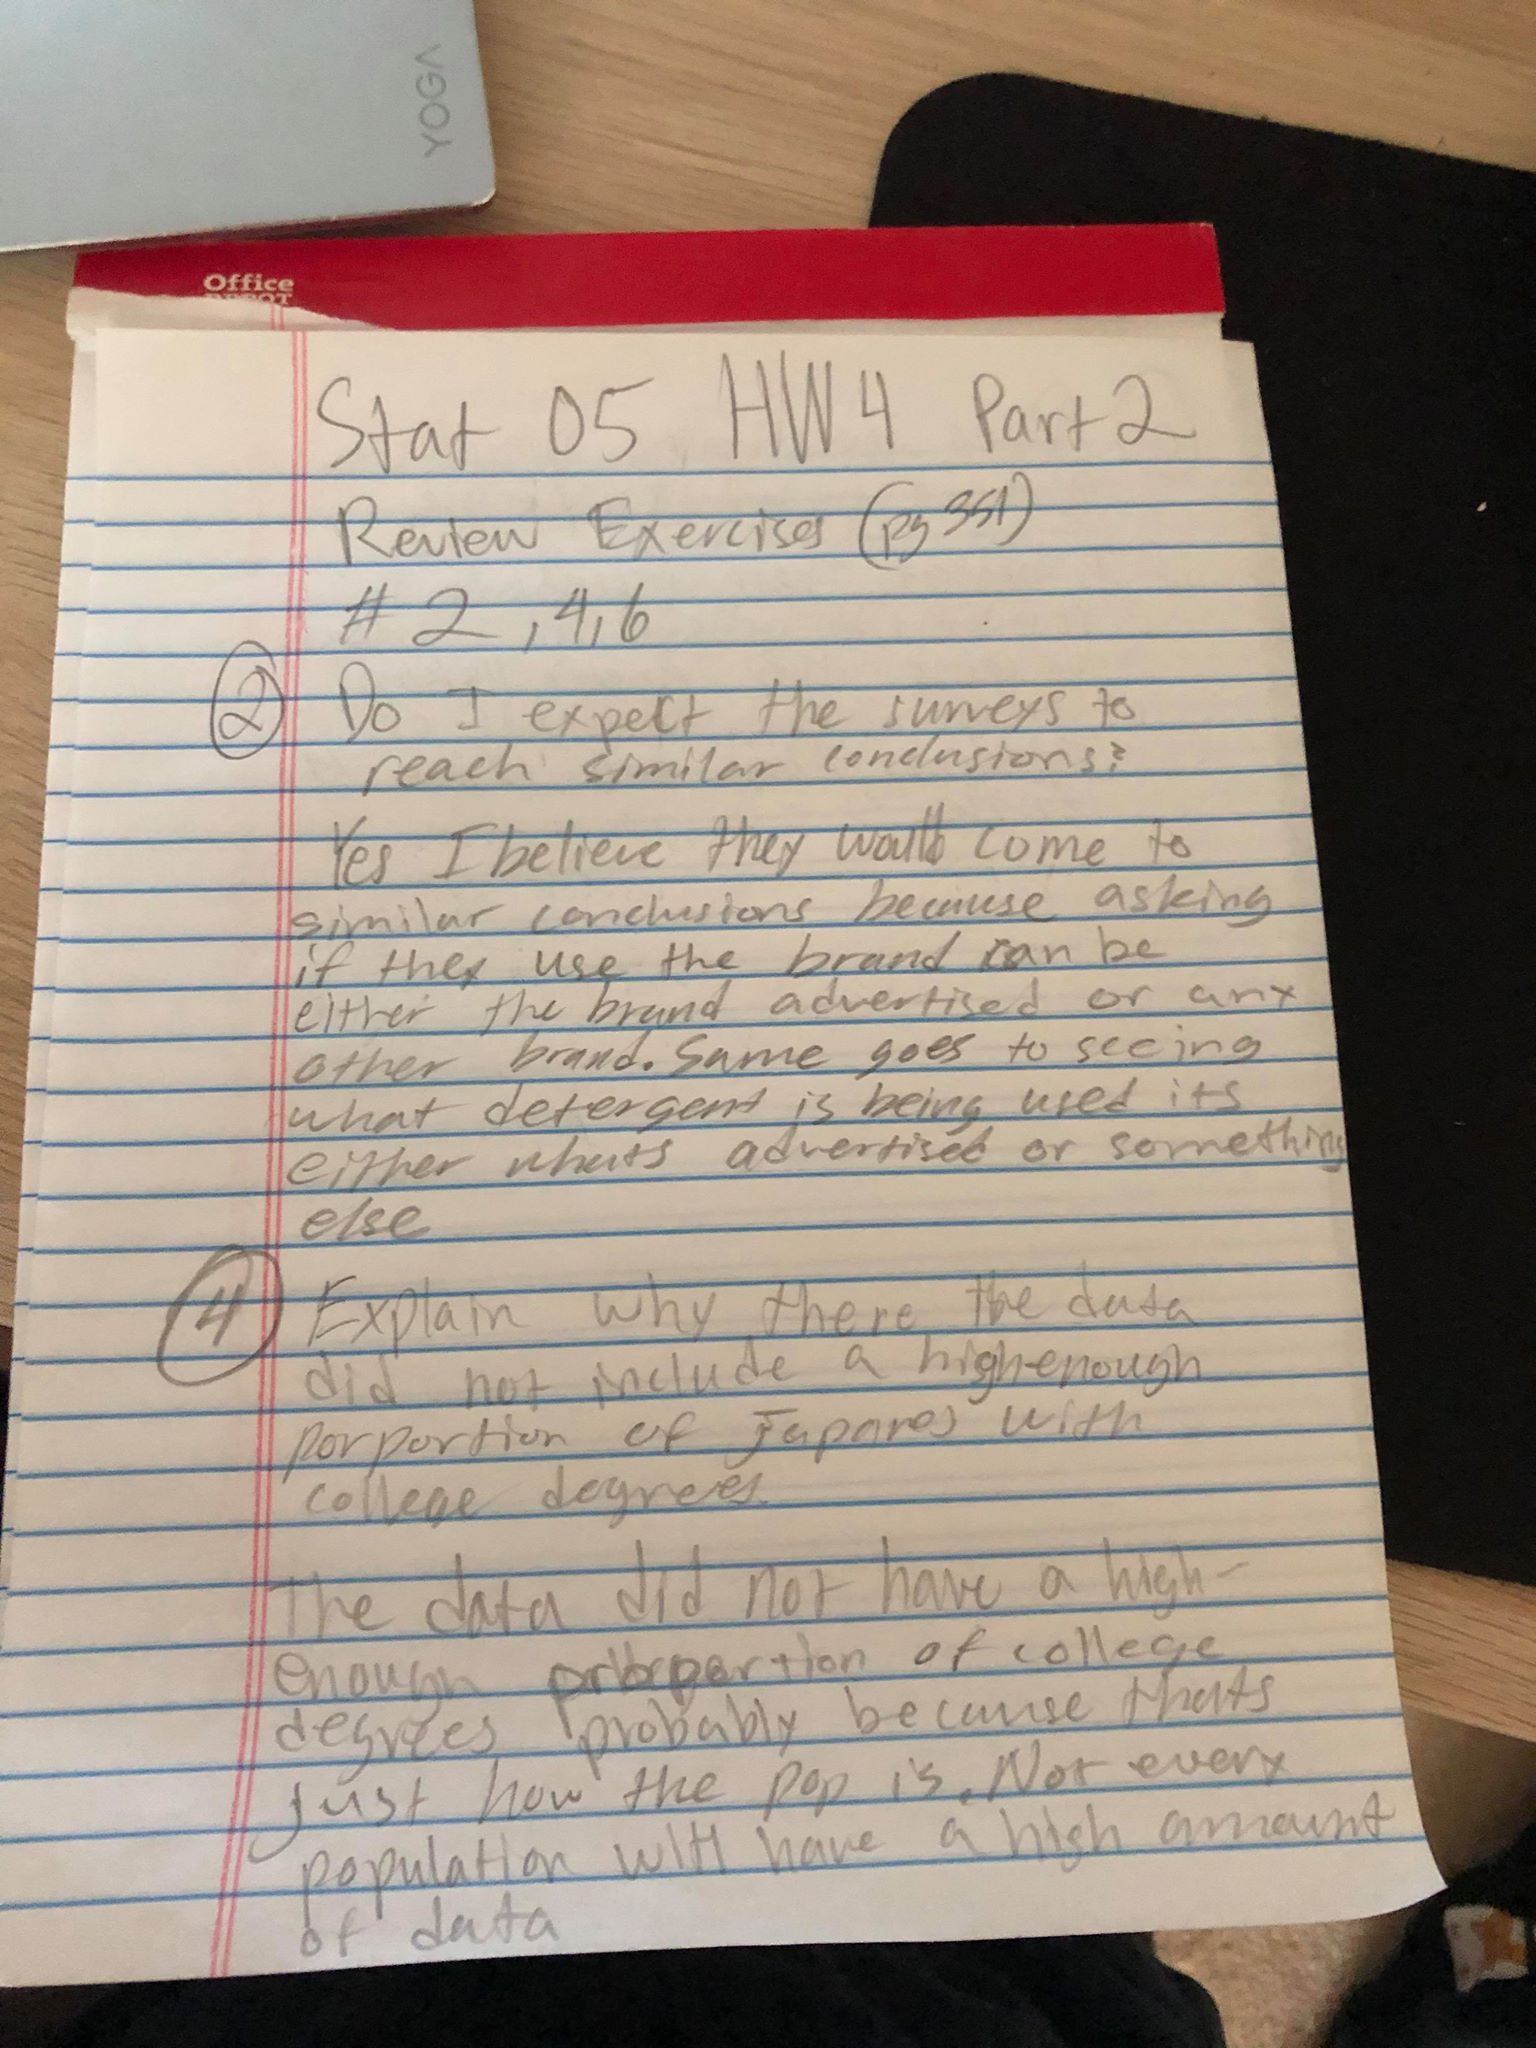 YOGA
Office
DEPOT
Stat 05 HW4 Part 2
Review Exercises (pg 351)
# 2, 4, 6
2 Do I expect the surveys to
reach similar conclusions?
Yes I believe they would come to
similar conclusions because asking
if they use the brand can be
either the brand advertised or any
other brand. Same goes to seeing
what detergent is being used its
either whats advertised or something
else
4 Explain why there the data
did not include a high-enough
porportion of Japanes with
college degrees.
The data did not have a high-
enough porportion of college
degrees probably because thats
just how the pop is. Not every
population will have a high amount
of data